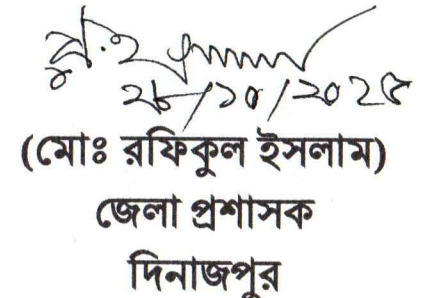 ২৮/১০/২০২৫
(মোঃ রফিকুল ইসলাম)
জেলা প্রশাসক
দিনাজপুর